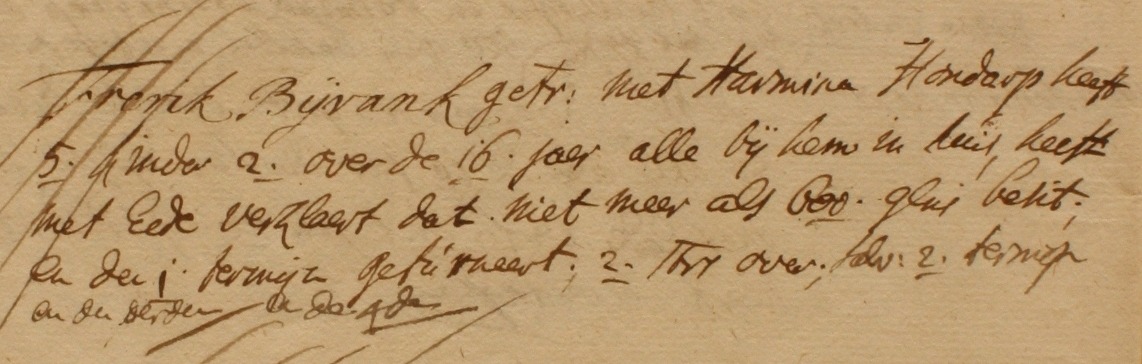 Frerik Bijvank getr: met Harmina Hondarp heeft
5. kinder 2. over de 16. jaer alle bij hem in huis, heeft
met Eede verklaert dat niet meer als 600. gls besit;
en den 1. termijn gefurneert; 2. over; 2. termijn
en den derden en de 4de